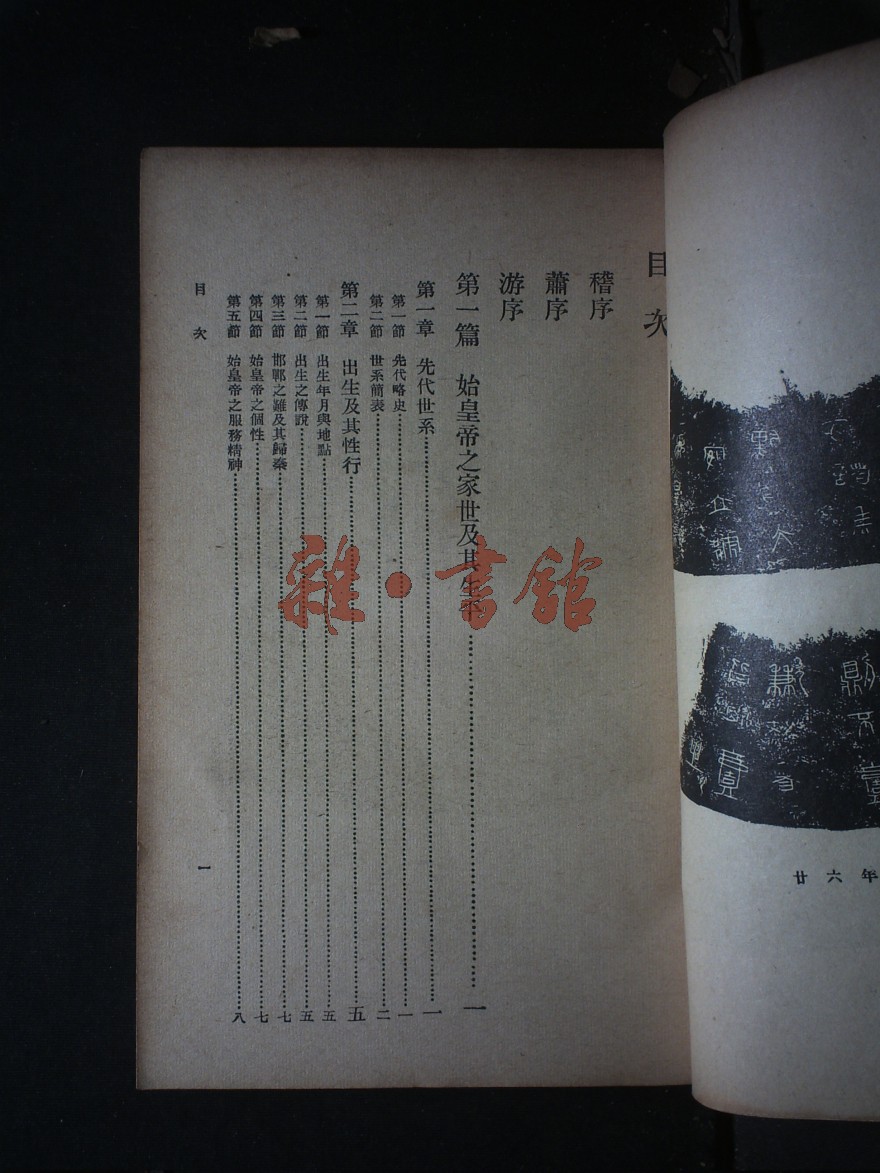 目次
稽序
蕭序
游序
第一篇 始皇帝之家世及其生平……一
第一章 先代世系……一
第一節 先代略史……一
第二節 世系簡表……二
第二章 出生及其性行……五
第一節 出生年月與地點……五
第二節 出生之傳說……五
第三節 邯鄲之難及其歸秦……七
第四節 始皇帝之個性……七
第五節 始皇帝之服務精神……八
目次
一
年六廿
雜·書館